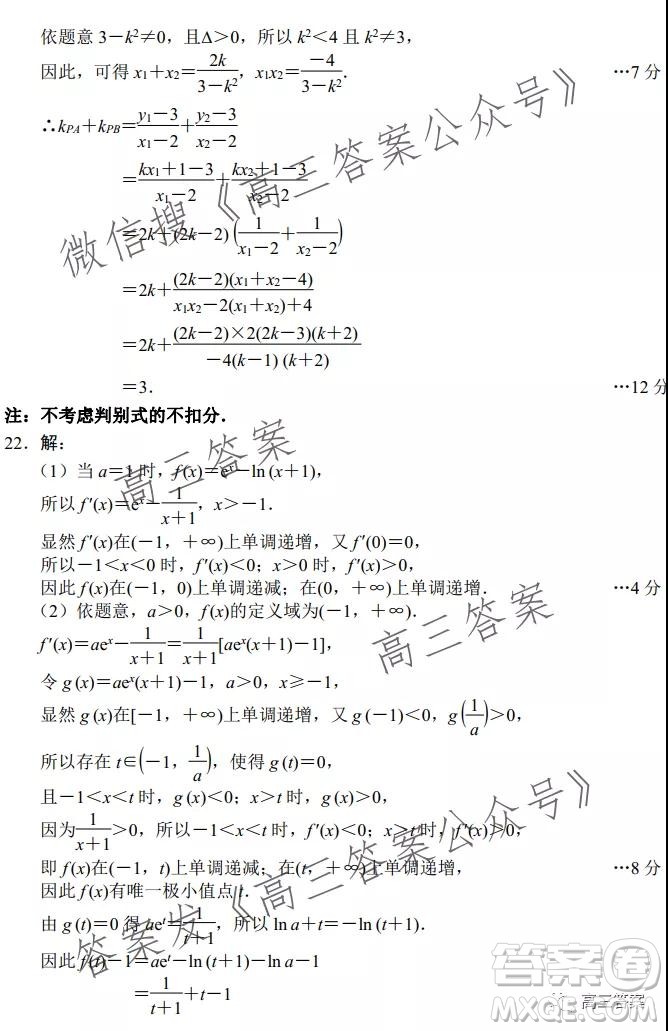 依题意 3－k²≠0，且Δ＞0，所以 k²＜4 且 k²≠3，
因此，可得 x₁＋x₂＝2k/(3－k²)，x₁x₂＝－4/(3－k²)． …7 分
∴kPA＋kPB＝(y₁－3)/(x₁－2)＋(y₂－3)/(x₂－2)
＝(kx₁＋1－3)/(x₁－2)＋(kx₂＋1－3)/(x₂－2)
＝2k＋(2k－2)(1/(x₁－2)＋1/(x₂－2))
＝2k＋(2k－2)(x₁＋x₂－4)/(x₁x₂－2(x₁＋x₂)＋4)
＝2k＋(2k－2)×2(2k－3)(k＋2)/(－4(k－1) (k＋2))
＝3． …12 分
注：不考虑判别式的不扣分．
22．解：
（1）当 a＝1 时，f (x)＝eˣ－ln (x＋1)，
所以 f ′(x)＝eˣ－1/(x＋1)，x＞－1．
显然 f ′(x)在(－1，＋∞)上单调递增，又 f ′(0)＝0，
所以－1＜x＜0 时，f ′(x)＜0；x＞0 时，f ′(x)＞0，
因此 f (x)在(－1，0)上单调递减；在(0，＋∞)上单调递增． …4 分
（2）依题意，a＞0，f (x)的定义域为(－1，＋∞)．
f ′(x)＝aeˣ－1/(x＋1)＝1/(x＋1)[aeˣ(x＋1)－1]，
令 g (x)＝aeˣ(x＋1)－1，a＞0，x≥－1，
显然 g (x)在[－1，＋∞)上单调递增，又 g (－1)＜0，g(1/a)＞0，
所以存在 t∈(－1，1/a)，使得 g (t)＝0，
且－1＜x＜t 时，g (x)＜0；x＞t 时，g (x)＞0，
因为1/(x＋1)＞0，所以－1＜x＜t 时，f ′(x)＜0；x＞t 时，f ′(x)＞0，
即 f (x)在(－1，t)上单调递减；在(t，＋∞)上单调递增， …8 分
因此 f (x)有唯一极小值点 t．
由 g (t)＝0 得 aeᵗ＝1/(t＋1)，所以 ln a＋t＝－ln (t＋1)．
因此 f (t)－1＝aeᵗ－ln (t＋1)－ln a－1
＝1/(t＋1)＋t－1
微信搜《高三答案公众号》
高三答案
高三答案
答案发《高三答案公众号》
答案圈
MXQE.COM
高三答案